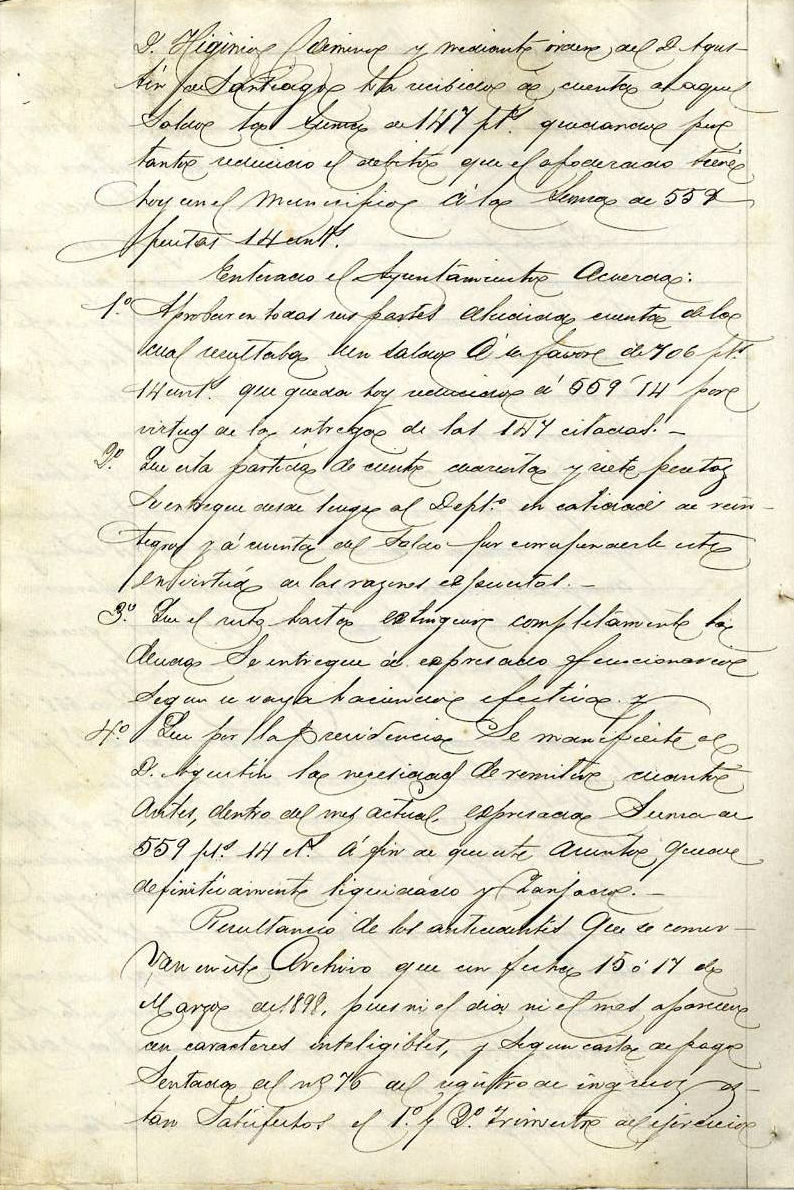 D. Higinio Cominos y mediante orden del D. Agus-
tin de Santiago ha recibido á cuenta de aquel
saldo la suma de 147 pts. quedando por
tanto reducido el debito que el apoderado tiene
hoy con el Municipio á la suma de 559
pesetas 14 cents.
Enterado el Ayuntamiento Acuerda:
1.º Aprobar en todas sus partes aludida cuenta de la
cual resultaba un saldo á su favor de 706 pts
14 cents. que queda hoy reducido á 559'14 por
virtud de la entrega de las 147 citadas. -
2.º Que esta partida de ciento cuarenta y siete pesetas
se entregue desde luego al Dept.º en calidad de rein-
tegro y á cuenta del saldo por corresponderle este
en virtud de las razones expuestas. -
3.º Que el resto hasta extinguir completamente la
deuda se entregue á expresado funcionario
segun se vaya haciendo efectiva. y
4.º Que por la Presidencia se manifieste al
D. Agustin la necesidad de remitir cuanto
antes, dentro del mes actual, expresada suma de
559 pts. 14 cts. á fin de que este asunto quede
definitivamente liquidado y zanjado. -
Resultando de los antecedentes que se conser-
van en este Archivo que con fecha 15 ó 17 de
Marzo de 1898, pues ni el dia ni el mes aparecen
con caracteres inteligibles, y segun carta de pago
sentada al nº 76 del registro de ingresos es-
tan satisfechos el 1.º y 2.º trimestre del ejercicio